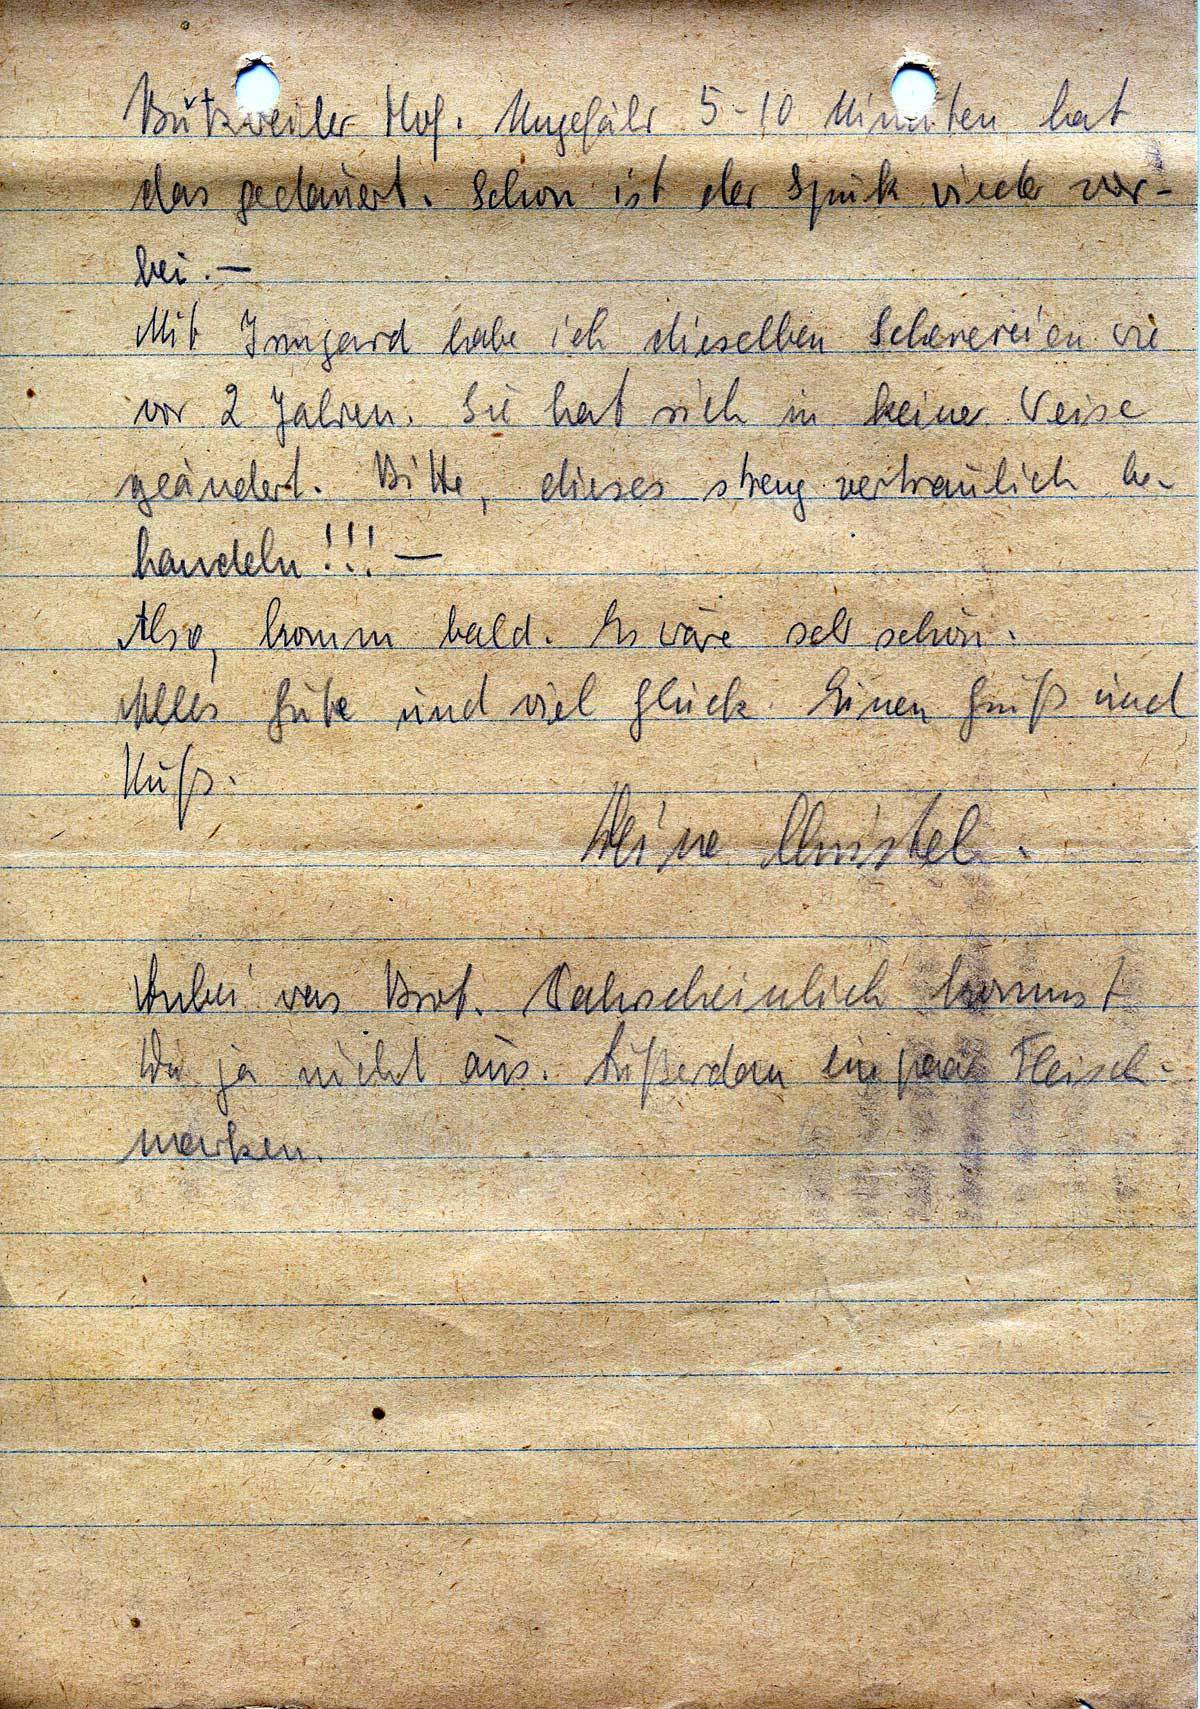 Butzweiler Hof. Ungefähr 5-10 Minuten hat
das gedauert. Schon ist der Spuk wieder vor-
bei. —
Mit Irmgard habe ich dieselben Scherereien wie
vor 2 Jahren. Sie hat sich in keiner Weise
geändert. Bitte, dieses streng vertraulich be-
handeln!!! —
Also, komm bald. Es wäre sehr schön.
Alles Gute und viel Glück. Einen Gruß und
Kuß.
Deine Christel.
Anbei was Brot. Wahrscheinlich kommst
Du ja nicht aus. Außerdem ein paar Fleisch-
marken.